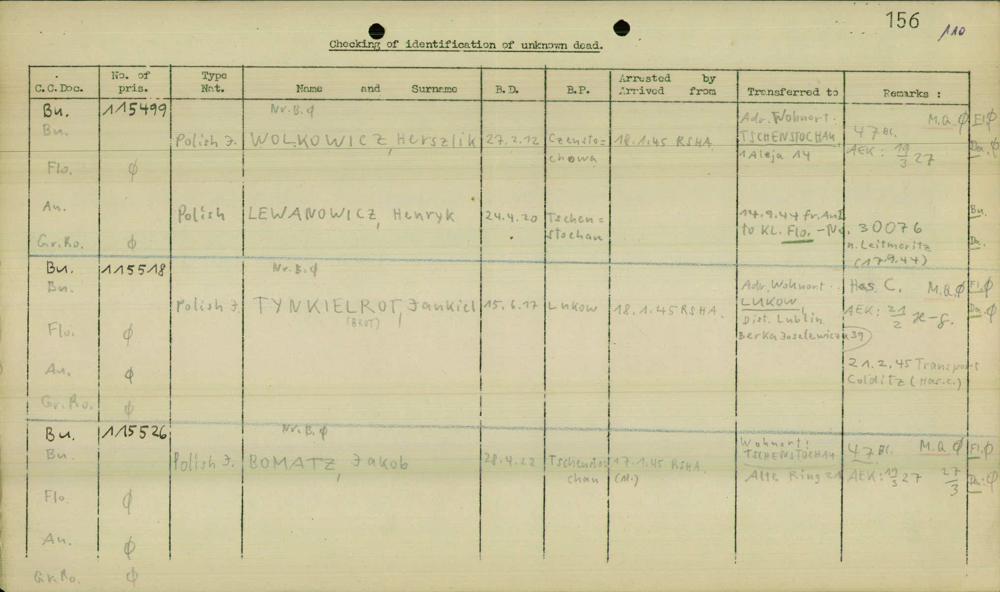 156
110
Checking of identification of unknown dead.
C.C.Doc. No. of pris. Type Nat. Name and Surname B.D. B.P. Arrested by Arrived from Transferred to Remarks :
Bu. 115499 Nr.B.ϕ Adr. Wohnort: M.Q.ϕ Fl.ϕ
Bu. Polish J. WOLKOWICZ, Herszlik 27.2.12 Czensto= 18.1.45 RSHA TSCHENSTOCHAU 47 Bl. Da.ϕ
chowa 1 Aleja 14 AEK: 19/3 27
Flo. ϕ
An. Polish LEWANOWICZ, Henryk 24.4.20 Tschen= 14.9.44 fr. Au I Bu.
stochau to KL. Flo. - No. 30076
Gr.Ro. ϕ n. Leitmeritz Da.
(17.9.44)
Bu. 115518 Nr.B.ϕ
Bu. Adr. Wohnort: Has. C. M.Q.ϕ Fl.ϕ
Polish J. TYNKIELROT, Jankiel 15.6.17 Lukow 18.1.45 RSHA. LUKOW AEK: 21/2 Da.ϕ
(BROT) Dist. Lublin
Flo. ϕ Berka Joselewicza 39
21.2.45 Transport
An. ϕ Colditz (Has.c.)
Gr.Ro. ϕ
Bu. 115526 Nr.B.ϕ Wohnort: 47 Bl. M.Q.ϕ Fl.ϕ
Bu. Polish J. BOMATZ, Jakob 28.4.22 Tschensto= 17.1.45 RSHA. TSCHENSTOCHAU
chau Alte Ring 21 AEK: 19/3 27 27/3 Da.ϕ
Flo. ϕ
An. ϕ
Gr.Ro. ϕ